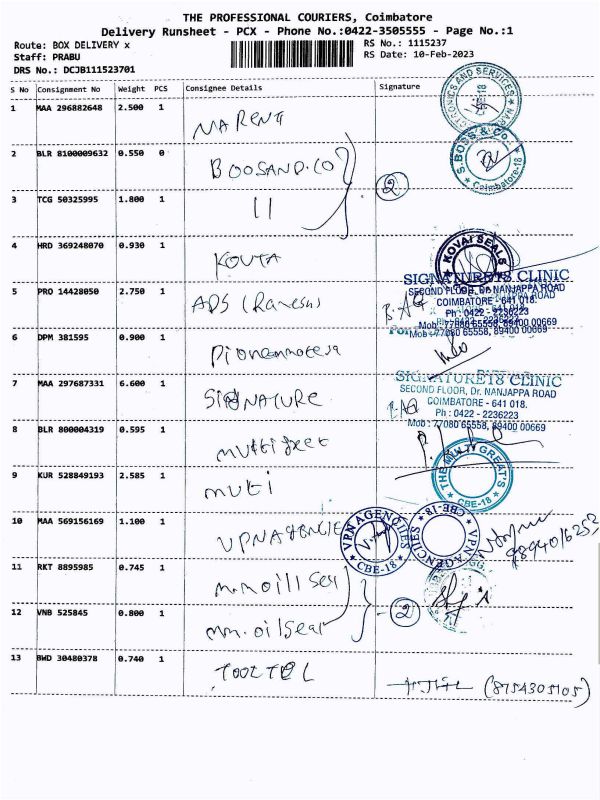 THE PROFESSIONAL COURIERS, Coimbatore
Delivery Runsheet - PCX - Phone No.:0422-3505555 - Page No.:1
Route: BOX DELIVERY x
RS No.: 1115237
Staff: PRABU
RS Date: 10-Feb-2023
DRS No.: DCJB111523701
S No Consignment No Weight PCS Consignee Details Signature
1 MAA 296882648 2.500 1
2 BLR 8100009632 0.550 0 BOOSAND.CO
S.BOSS & Co.
Coimbatore-18
2
3 TCG 50325995 1.800 1 11
4 HRD 369248070 0.930 1
KOVAI SEALS
SIGNATURE18 CLINIC
SECOND FLOOR, Dr. NANJAPPA ROAD
COIMBATORE - 641 018.
Ph : 0422 - 2236223
Mob : 77080 65558, 89400 00669
5 PRO 14428050 2.750 1 ADS (Ramesh)
6 DPM 381595 0.900 1
7 MAA 297687331 6.600 1 SIGNATURE
SIGNATURE18 CLINIC
SECOND FLOOR, Dr. NANJAPPA ROAD
COIMBATORE - 641 018.
Ph : 0422 - 2236223
Mob : 77080 65558, 89400 00669
8 BLR 800004319 0.595 1
9 KUR 528849193 2.585 1 muti
THE MULTY GREAT'S
CBE-18
10 MAA 569156169 1.100 1 VPNAGENCIE
VPN AGENCIIES
CBE-18
VPN AGENCIIES
CBE-18
11 RKT 8895985 0.745 1
12 VNB 525845 0.800 1 mm.oilSeal
2
13 BWD 30480378 0.740 1 TOOLTEL
(8754305105)